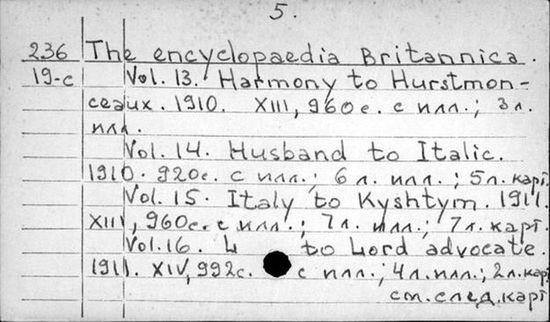 5.
236 The encyclopaedia Britannica.
19-c Vol. 13. Harmony to Hurstmon-
ceaux. 1910. XIII, 960 с. с илл.; 3 л.
илл.
Vol. 14. Husband to Italic.
1910. 920 с. с илл.; 6 л. илл.; 5 л. карт
Vol. 15. Italy to Kyshtym. 1911.
XIII, 960 с. с илл.; 7 л. илл.; 7 л. карт.
Vol. 16. L to Lord advocate.
1911. XIV, 992 с. с илл.; 4 л. илл.; 2 л. карт
см. след. карт